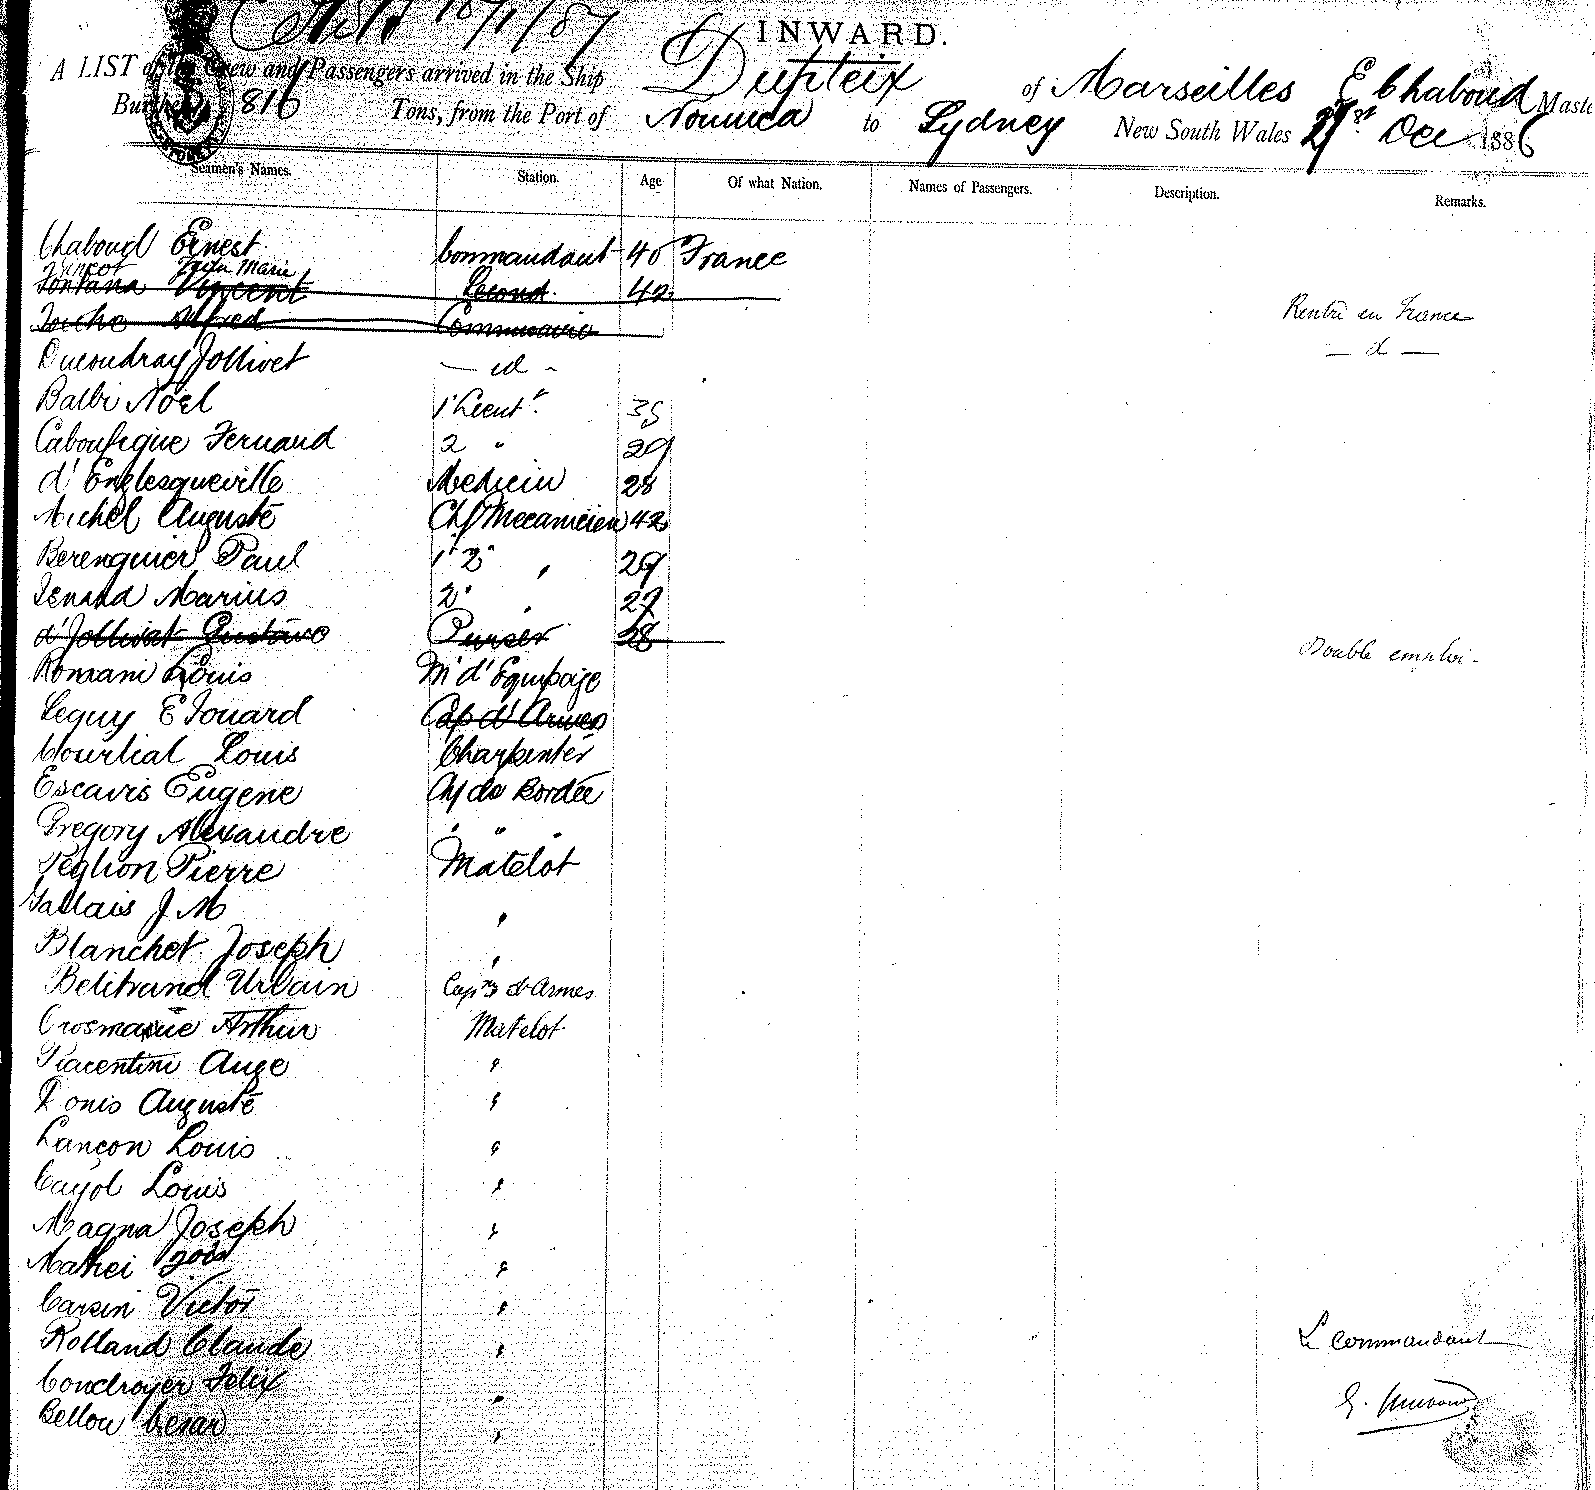 18/1/87
INWARD.
A LIST of the Crew and Passengers arrived in the Ship Dupleix of Marseilles E Chaboud Master
Burthen 816 Tons, from the Port of Noumea to Sydney New South Wales 21st Dec 1886
Seamen's Names. Station. Age Of what Nation. Names of Passengers. Description. Remarks.
Chaboud Ernest Commandant 40 France
Jean Marie
Fontana Vincent Second 42
Alfred Commissaire Rentré en France
Ducoudray Jollivet — id - — d —
Balbi Noël 1r Lieut. 35
Caboufigue Fernand 2 " 29
d'Englesqueville Medecin 28
Michel Auguste Chf Mecanicien 42
Berenguier Paul 1r 2e " 29
Tenard Marius 2e " 27
d'Jollivet Gustave Purser 28 Double emploi -
Romani Louis M d'Equipage
Leguy Edouard Cap d'Armes
Courtial Louis Charpentier
Escavis Eugene Chf de Bordée
Gregory Alexandre " " "
Peglion Pierre Matelot
Gallais J. M "
Blanchet Joseph "
Belitrand Urbain Cap d'Armes
Crosmarie Arthur Matelot
Piacentini Ange "
Donis Auguste "
Lançon Louis "
Cayol Louis "
Magna Joseph "
Mathei "
Carsin Victor "
Rolland Claude "
Le commandant
Condroyer Felix "
Bellou Cesar "